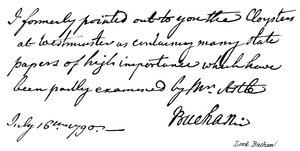 I formerly pointed out to you the Cloysters
at Westminster as containing many State
papers of high importance which have
been partly examined by Mr. Astle
Buchan
July 16th 1790
Lord Buchan